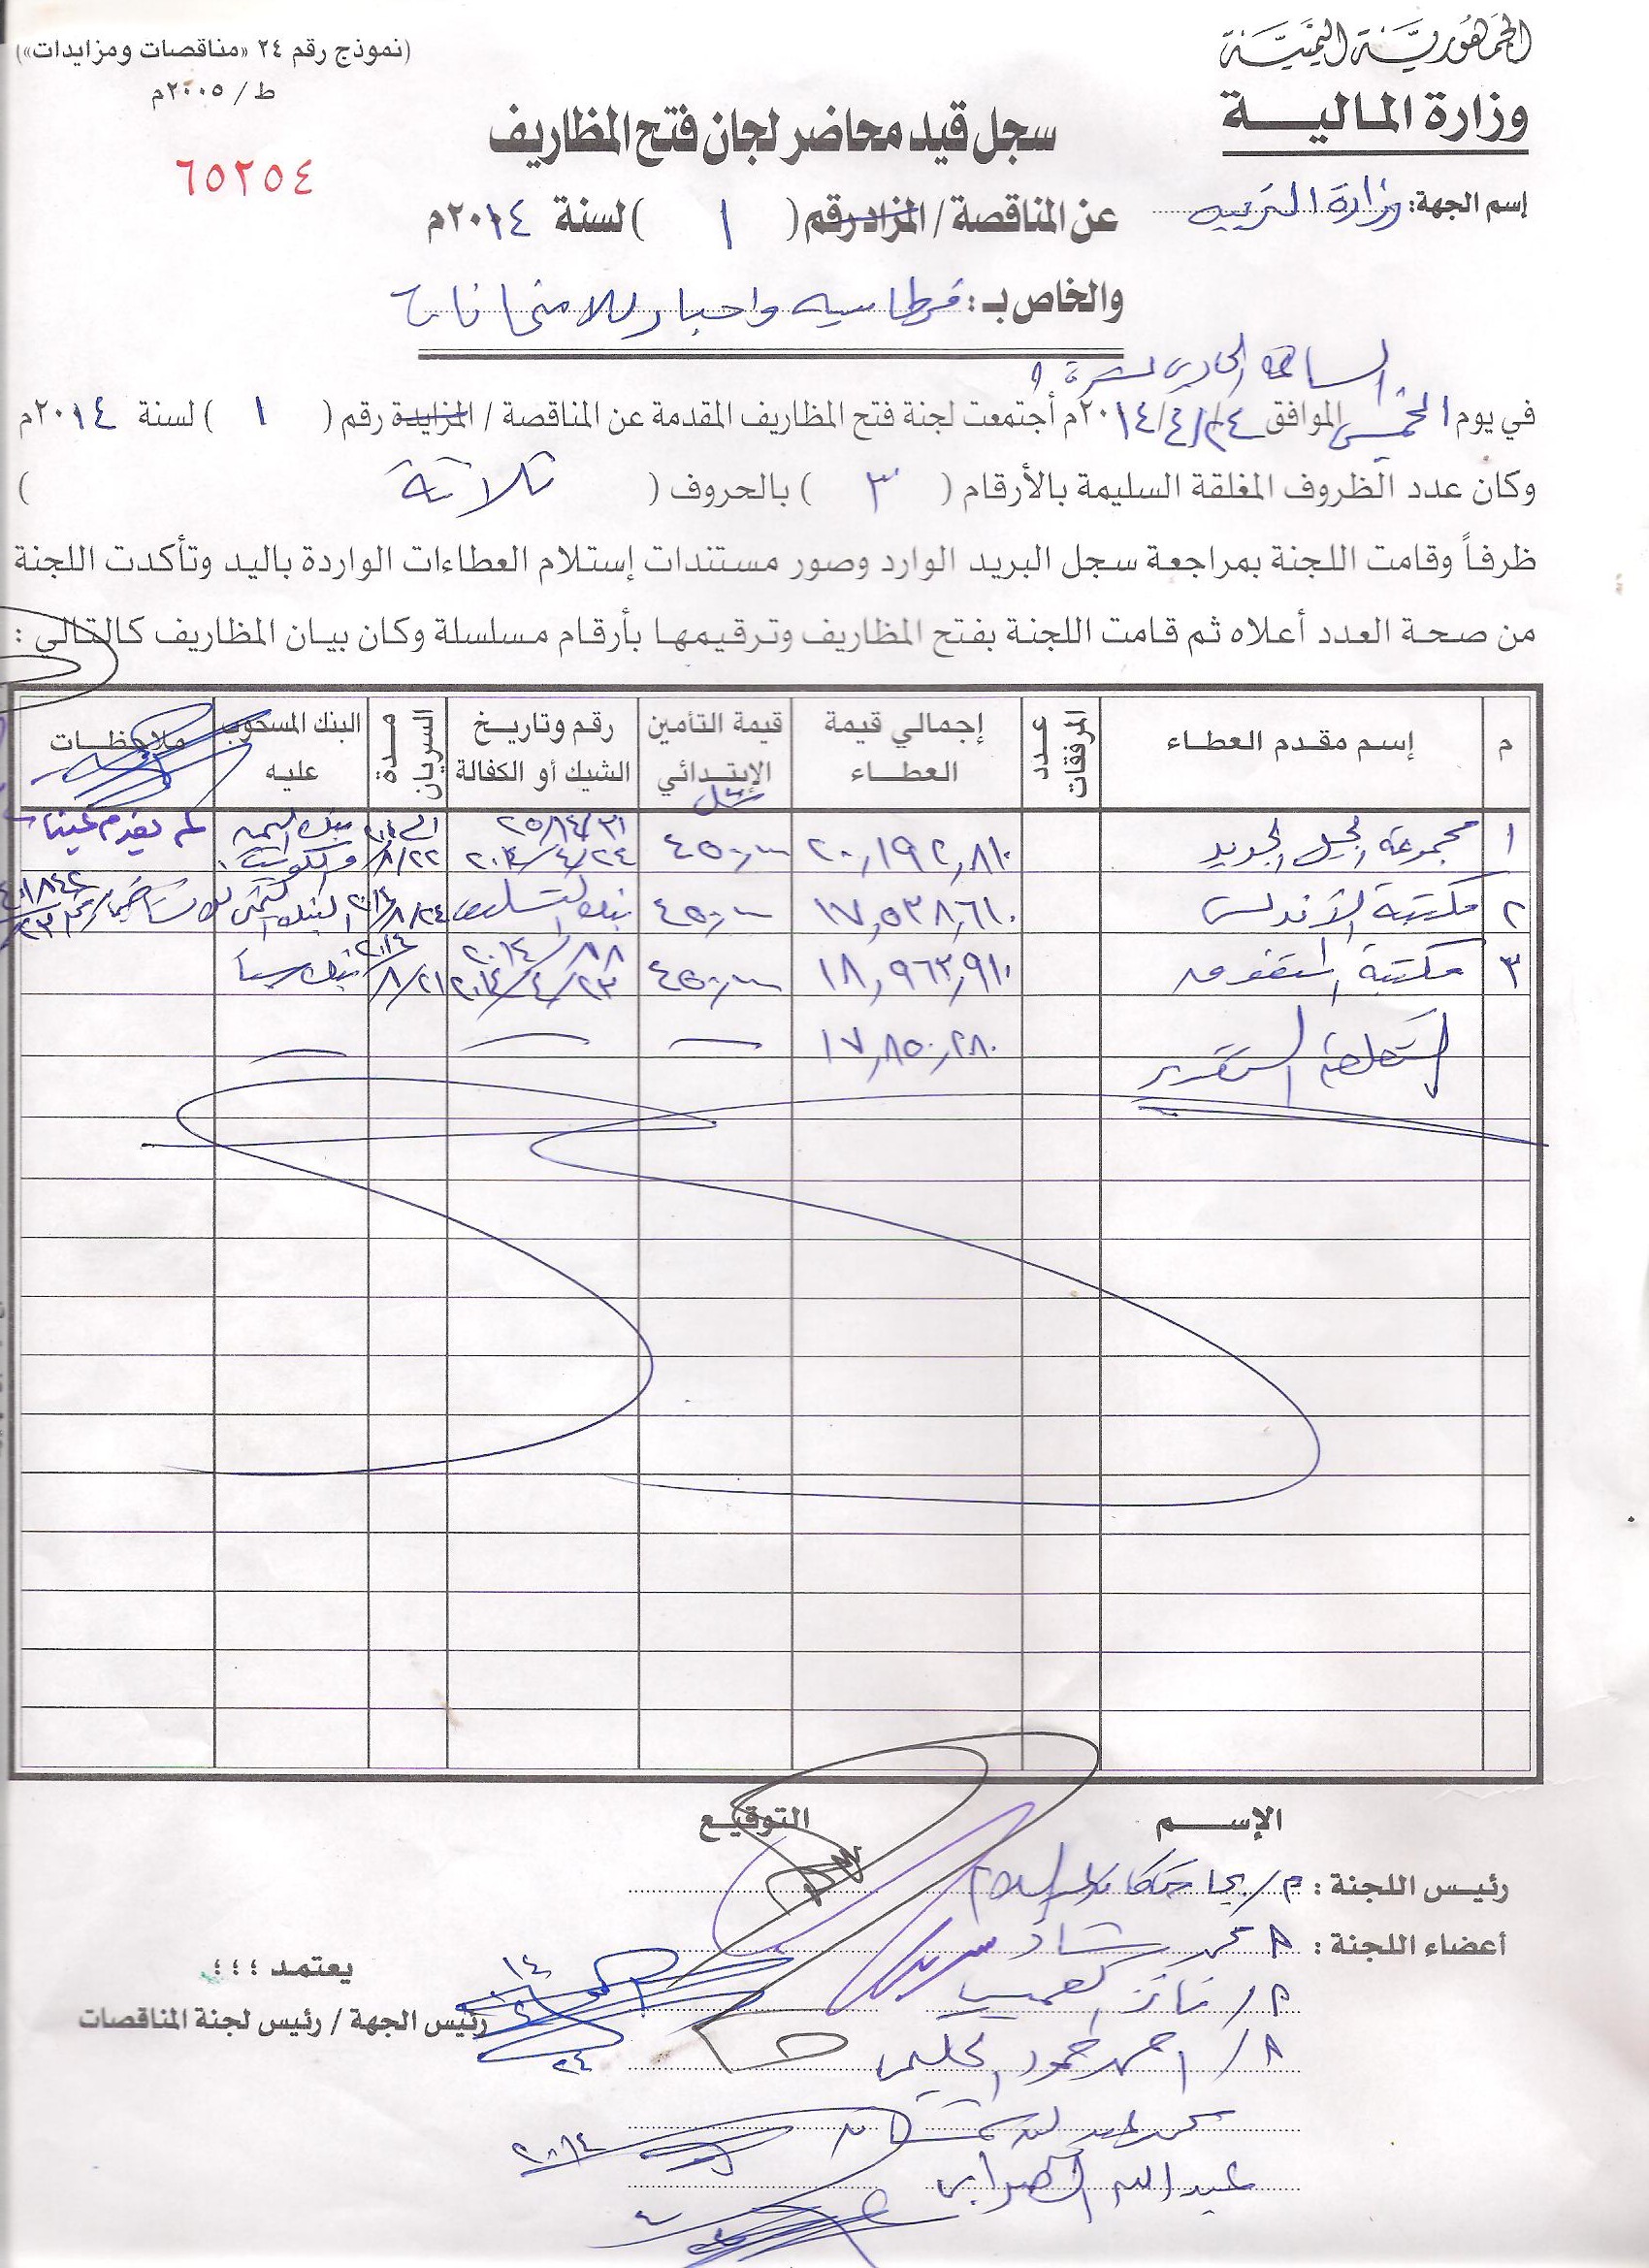 الجمهورية اليمنية
وزارة المالية
إسم الجهة: وزارة التربيه
(نموذج رقم ٢٤ «مناقصات ومزايدات»)
ط / ٢٠٠٥م
٦٥٢٥٤
سجل قيد محاضر لجان فتح المظاريف
عن المناقصة / المزاد رقم ( ١ ) لسنة ٢٠١٤م
والخاص بـ: قرطاسيه واحبار للامتحانات
الساعة الحادي عشرة
في يوم الخميس الموافق ٢٠١٤/٤/٢٤م أجتمعت لجنة فتح المظاريف المقدمة عن المناقصة / المزايدة رقم ( ١ ) لسنة ٢٠١٤م
وكان عدد الظروف المغلقة السليمة بالأرقام ( ٣ ) بالحروف ( ثلاثة )
ظرفاً وقامت اللجنة بمراجعة سجل البريد الوارد وصور مستندات إستلام العطاءات الواردة باليد وتأكدت اللجنة
من صحة العدد أعلاه ثم قامت اللجنة بفتح المظاريف وترقيمها بأرقام مسلسلة وكان بيان المظاريف كالتالي :
م إسم مقدم العطاء عدد المرفقات إجمالي قيمة العطاء قيمة التأمين الإبتدائي رقم وتاريخ الشيك أو الكفالة مدة السريان البنك المسحوب عليه ملاحظات
١ مجموعة الجيل الجديد ٢٠,١٩٢,٨١٠ ٤٥٠,٠٠٠ ٢٠١٤/٤/٢٤ ٨/٢٢ بنك اليمن والكويت لم يقدم عينات
٢ مكتبة الأندلس ١٧,٥٢٨,٦١٠ ٤٥٠,٠٠٠ ٢٠١٤/٨/٢٤
٣ مكتبة التفوق ١٨,٩٦٢,٩١٠ ٤٥٠,٠٠٠ ٢٠١٤/٤/٢٣ ٢٠١٤/٨/٢١ بنك سبأ
التكلفة التقديرية ١٧,٨٥٠,٢٨٠
الإســم التوقيع
رئيس اللجنة : م/
أعضاء اللجنة : أ/ محمد
أ/
أ/ احمد حمود
عبدالله
يعتمد ؛؛؛
رئيس الجهة / رئيس لجنة المناقصات